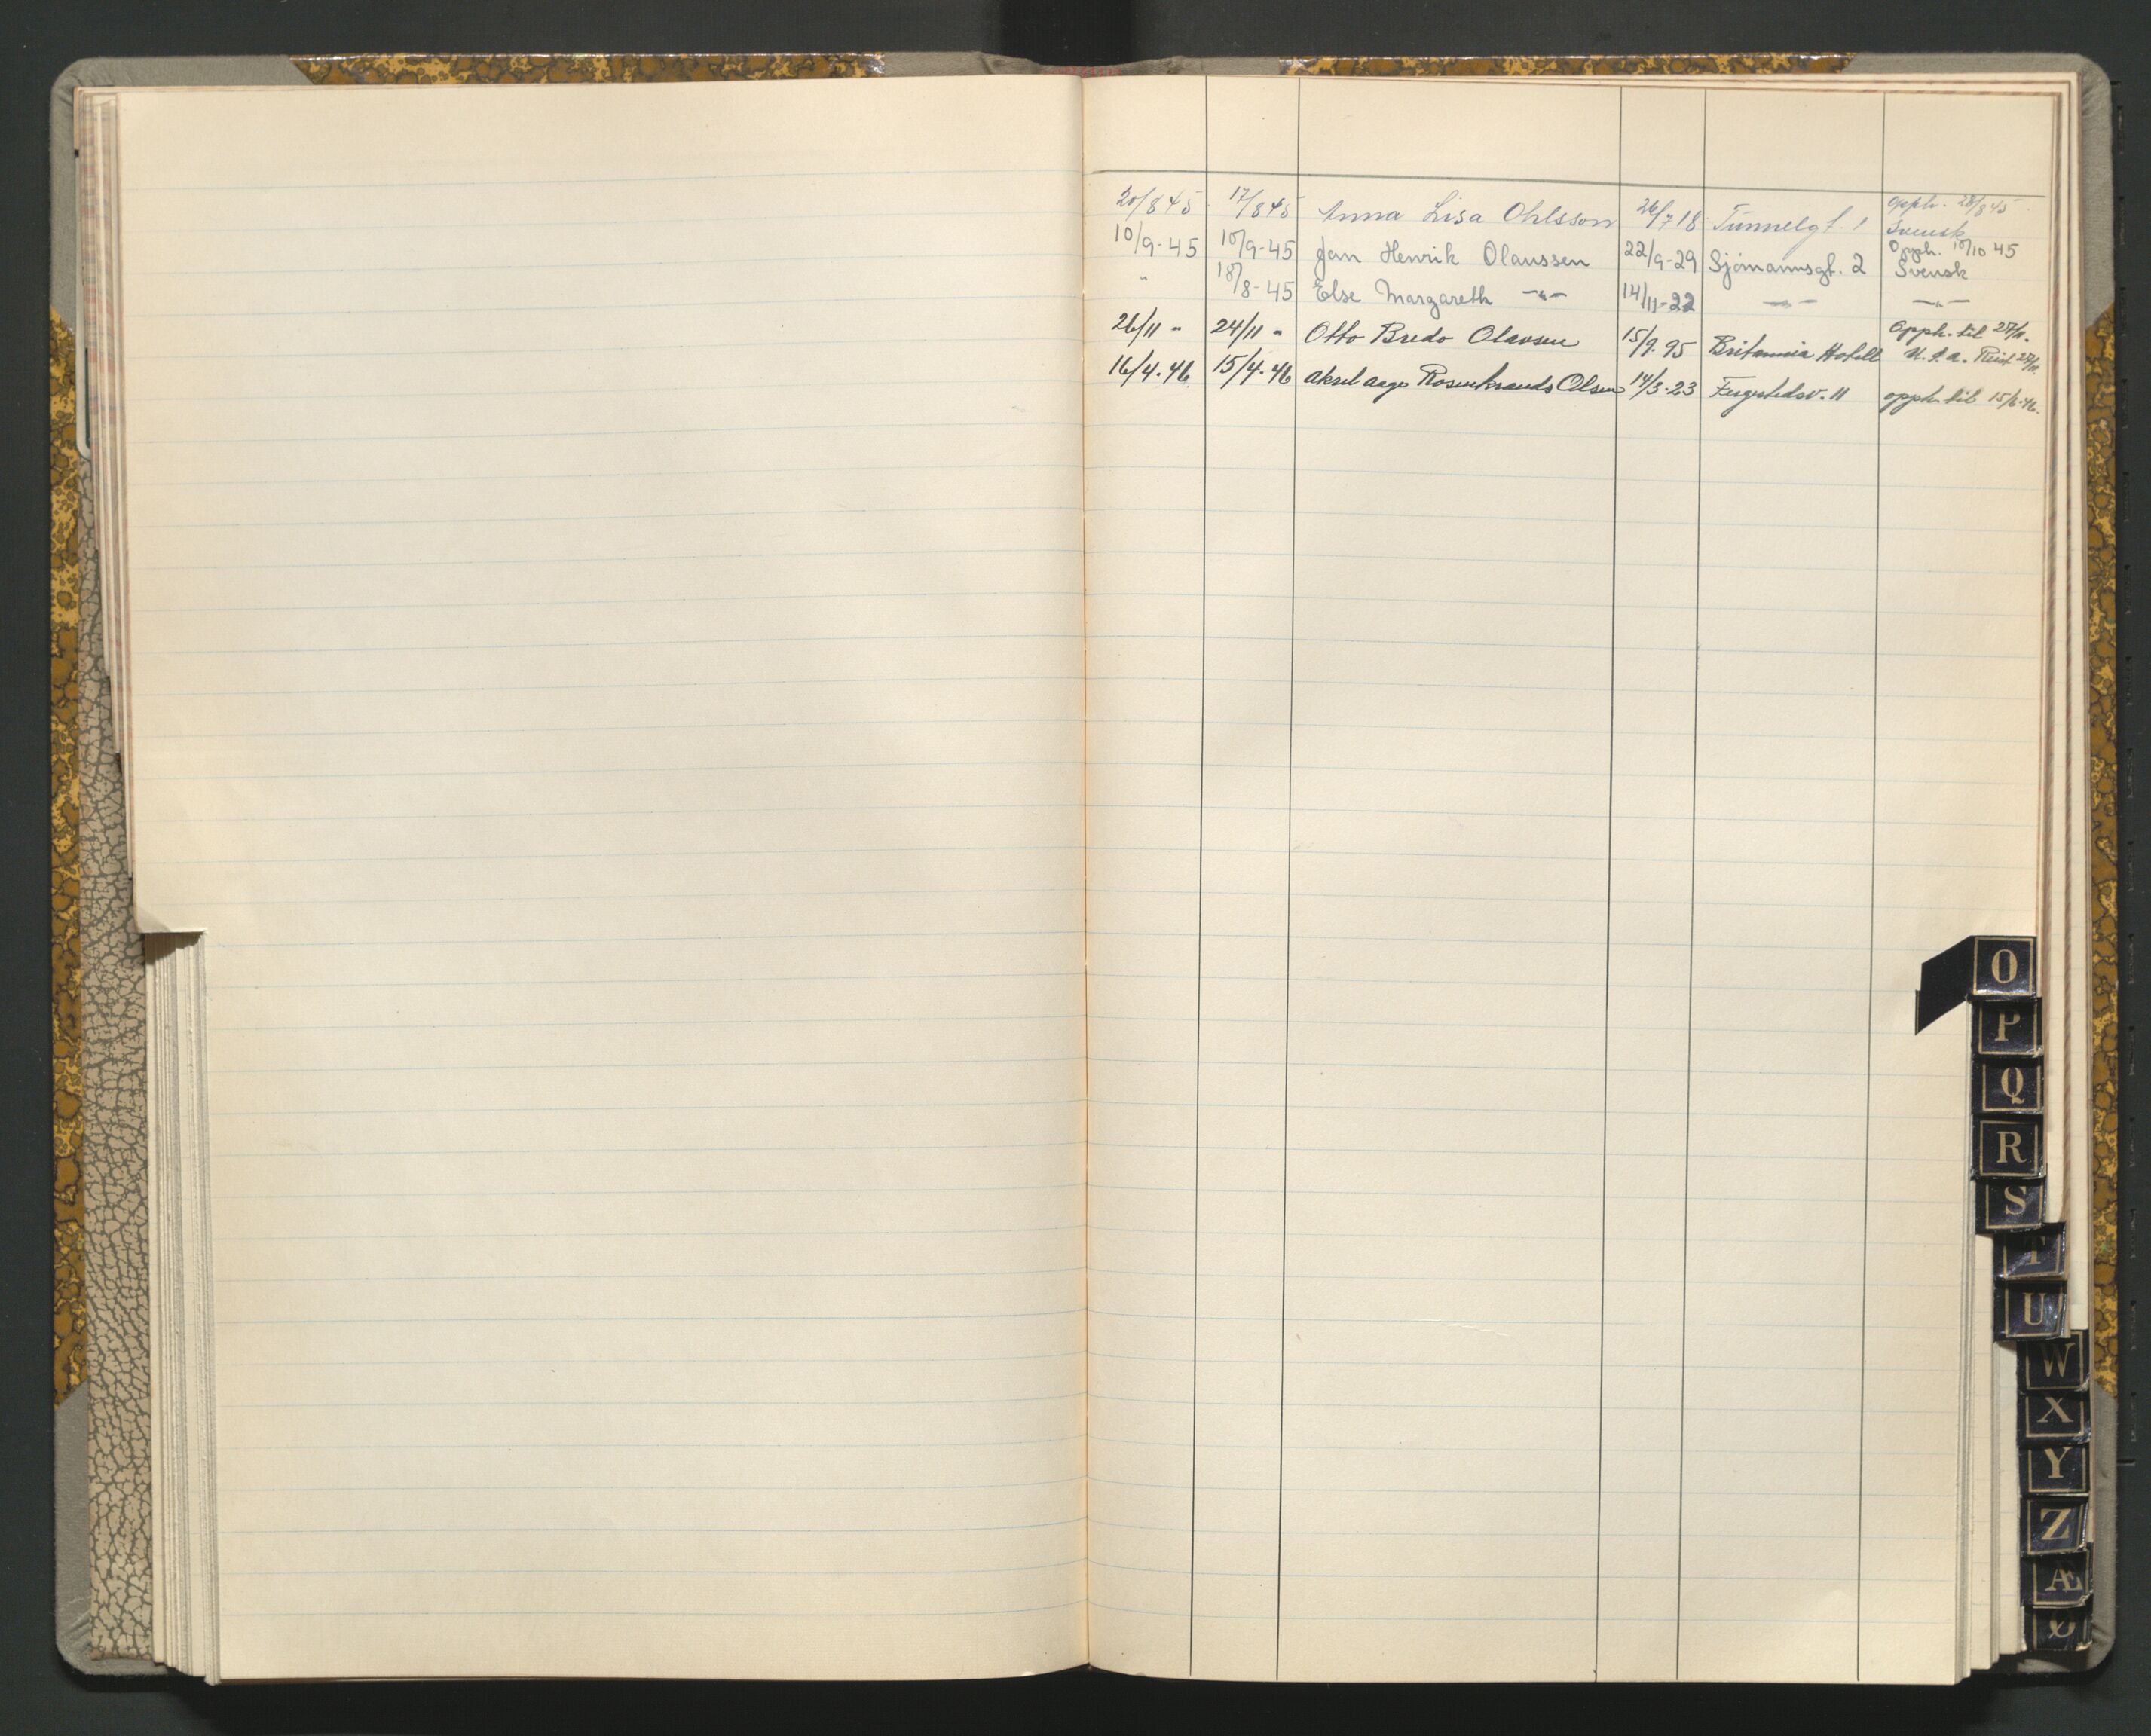 opph. 28/8 45
20/8 45 17/8 45 Anna Lisa Ohlsson 26/7 18 Tunnelgt. 1 Svensk
Opph. 10/10 45
10/9-45 10/9-45 Jan Henrik Olaussen 22/9-29 Sjömannsgt. 2 Svensk
" 18/8-45 Else Margareth -"- 14/11-22 -"- -"-
Opph. til 27/11.
26/11 " 24/11 " Otto Bredo Olavsen 15/9.95 Britannia Hotell U.S.A. Reist 27/11.
16/4.46 15/4.46 Aksel Aage Rosenkrands Olsen 14/3.23 opph. til 15/6.46.
O
P
Q
R
S
T
U
W
X
Y
Z
Æ
Ø